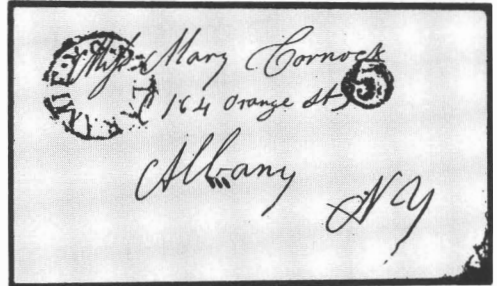 Miss Mary Cornock
164 Orange St
Albany
NY
3